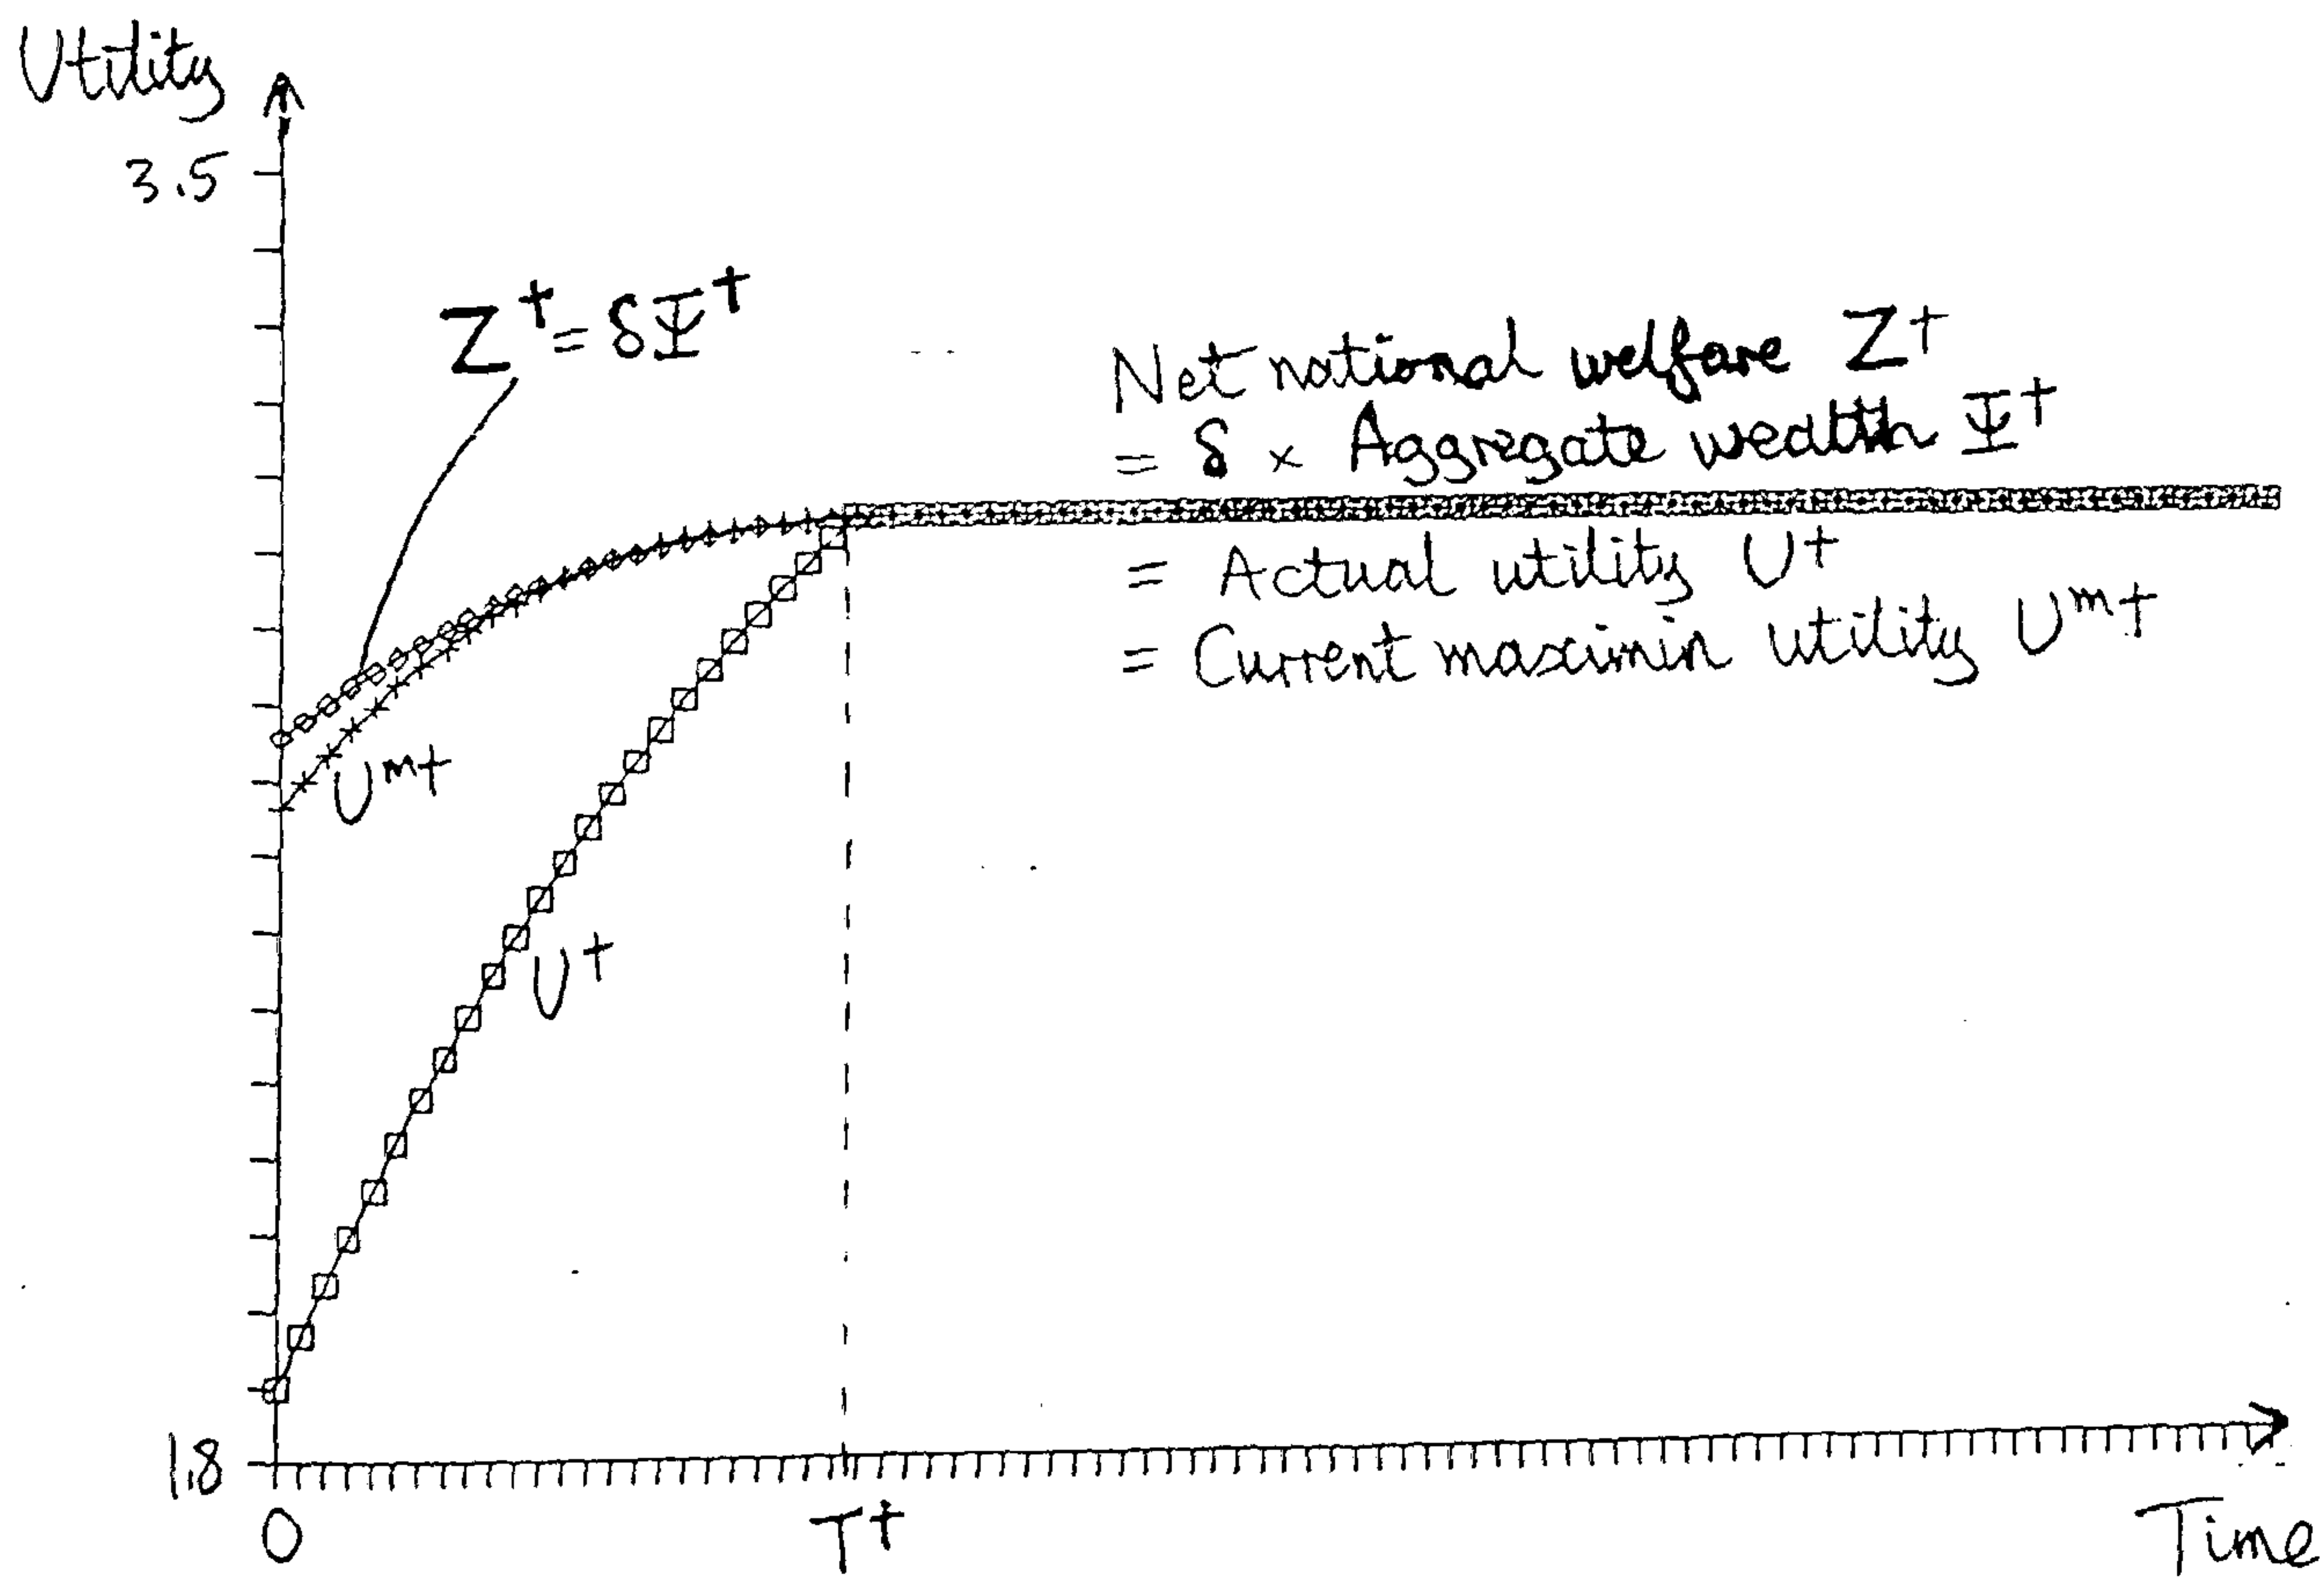 Utility
3.5
Z† = δΨ†
Net national welfare Z†
= δ × Aggregate wealth Ψ†
= Actual utility U†
= Current maximin utility Uᵐ†
Uᵐ†
U†
1.8
0
T†
Time